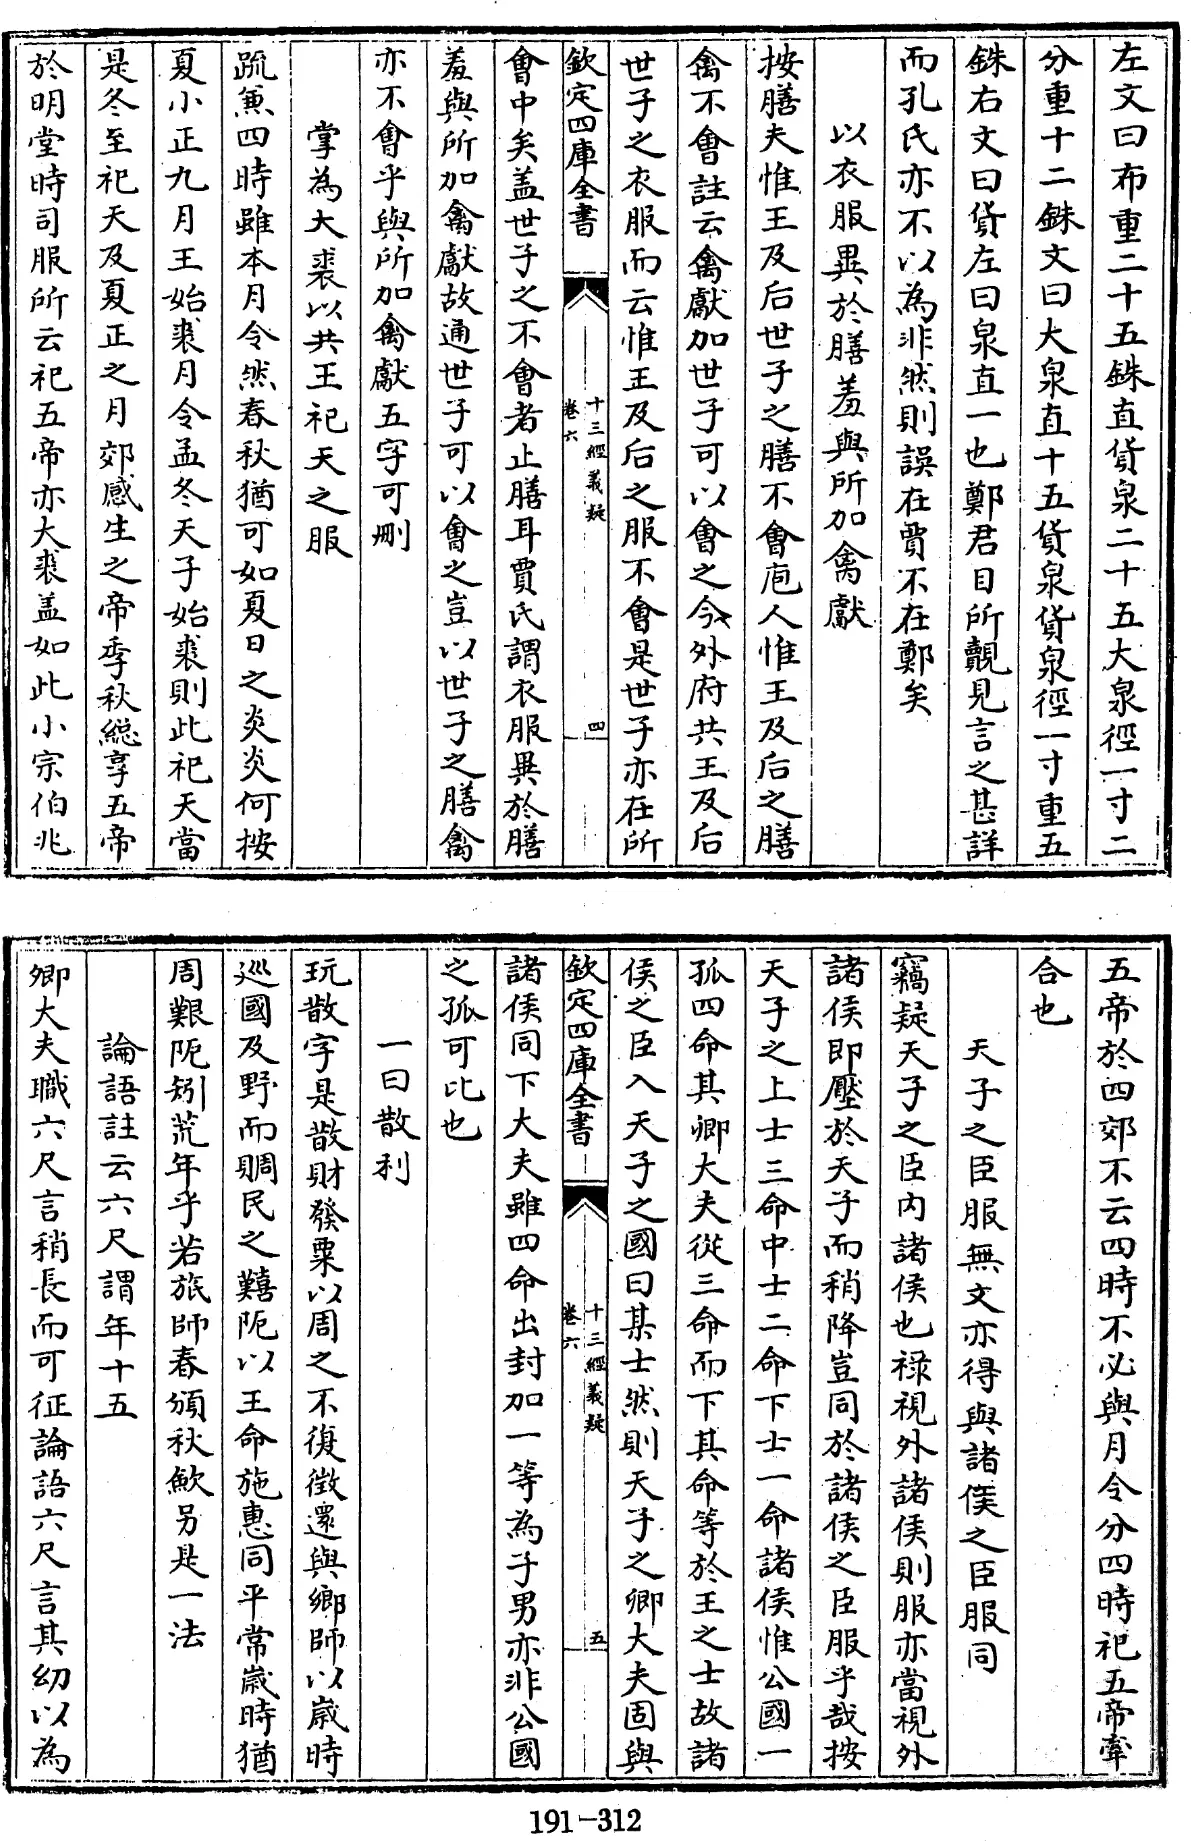 左文曰布重二十五銖直貨泉二十五大泉徑一寸二
分重十二銖文曰大泉直十五貨泉貨泉徑一寸重五
銖右文曰貨左曰泉直一也鄭君目所覩見言之甚詳
而孔氏亦不以為非然則誤在賈不在鄭矣
以衣服異於膳羞與所加禽獻
按膳夫惟王及后世子之膳不會庖人惟王及后之膳
禽不會註云禽獻加世子可以會之今外府共王及后
世子之衣服而云惟王及后之服不會是世子亦在所
欽定四庫全書
十三經義疑
卷六
四
會中矣盖世子之不會者止膳耳賈氏謂衣服異於膳
羞與所加禽獻故通世子可以會之豈以世子之膳禽
亦不會乎與所加禽獻五字可刪
掌為大裘以共王祀天之服
疏兼四時雖本月令然春秋猶可如夏日之炎炎何按
夏小正九月王始裘月令孟冬天子始裘則此祀天當
是冬至祀天及夏正之月郊感生之帝季秋緫享五帝
於明堂時司服所云祀五帝亦大裘盖如此小宗伯兆
五帝於四郊不云四時不必與月令分四時祀五帝牽
合也
天子之臣服無文亦得與諸侯之臣服同
竊疑天子之臣内諸侯也禄視外諸侯則服亦當視外
諸侯即壓於天子而稍降豈同於諸侯之臣服乎哉按
天子之上士三命中士二命下士一命諸侯惟公國一
孤四命其卿大夫從三命而下其命等於王之士故諸
侯之臣入天子之國曰某士然則天子之卿大夫固與
欽定四庫全書
十三經義疑
卷六
五
諸侯同下大夫雖四命出封加一等為子男亦非公國
之孤可比也
一曰散利
玩散字是散財發粟以周之不復徵還與鄉師以嵗時
巡國及野而賙民之囏阨以王命施惠同平常嵗時猶
周艱阨矧荒年乎若旅師春頒秋歛另是一法
論語註云六尺謂年十五
卿大夫職六尺言稍長而可征論語六尺言其幼以為
191-312